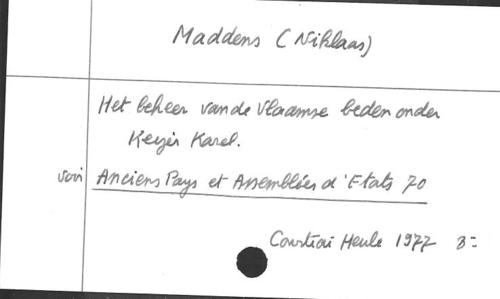 Maddens (Niklaas)
Het beheer van de Vlaamse beden onder
Keyzer Karel.
voir Anciens Pays et Assemblées d'Etats 70
Courtrai Heule 1977 8=